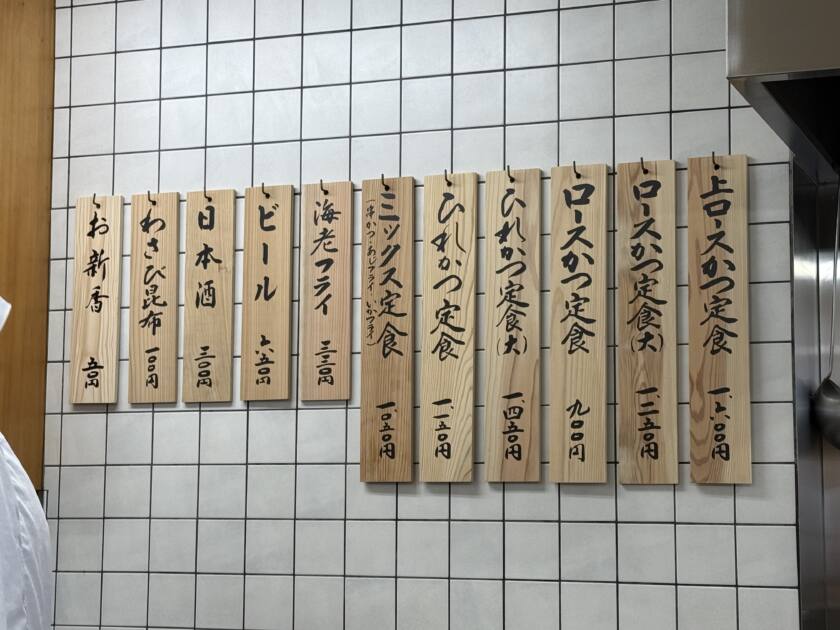 上ロースかつ定食 一、六〇〇円
ロースかつ定食(大) 一、二五〇円
ロースかつ定食 九〇〇円
ひれかつ定食(大) 一、四五〇円
ひれかつ定食 一、一五〇円
ミックス定食 一、〇五〇円
(串かつ・あじフライ いかフライ)
海老フライ 三三〇円
ビール 六五〇円
日本酒 三〇〇円
わさび昆布 一〇〇円
お新香 五〇円